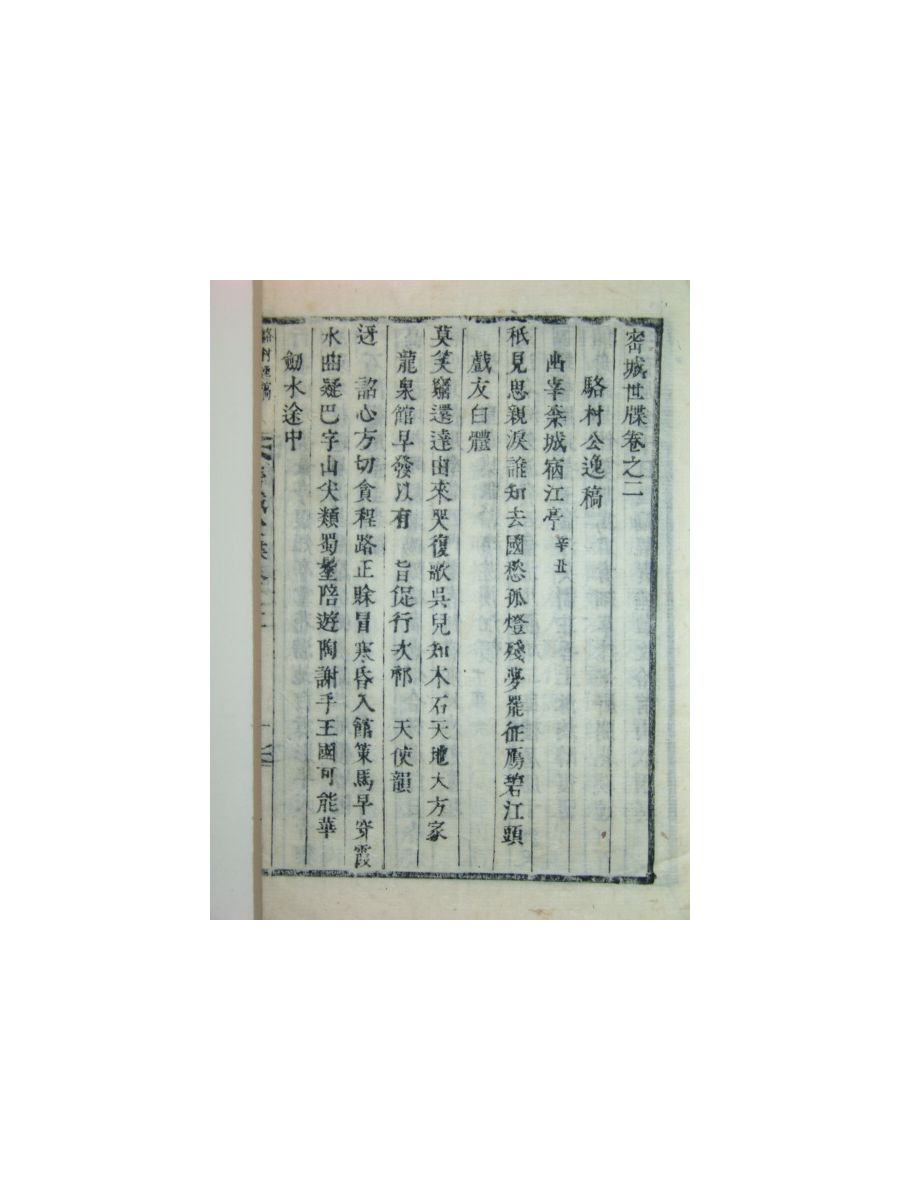 密城世牒卷之二
駱村公逸稿
出宰棄城宿江亭 辛丑
秖見思親淚誰知去國愁孤燈殘夢罷征鴈碧江頭
戲友白體
莫笑窮還達由來哭復歌吳兒知木石天地大方家
龍泉館早發以有 旨促行次邢 天使韻
迓 詔心方切貪程路正賖冒寒昏入館策馬早穿霞
水曲疑巴字山尖類蜀髽陪遊陶謝手王國可能華
劒水途中
駱村逸稿